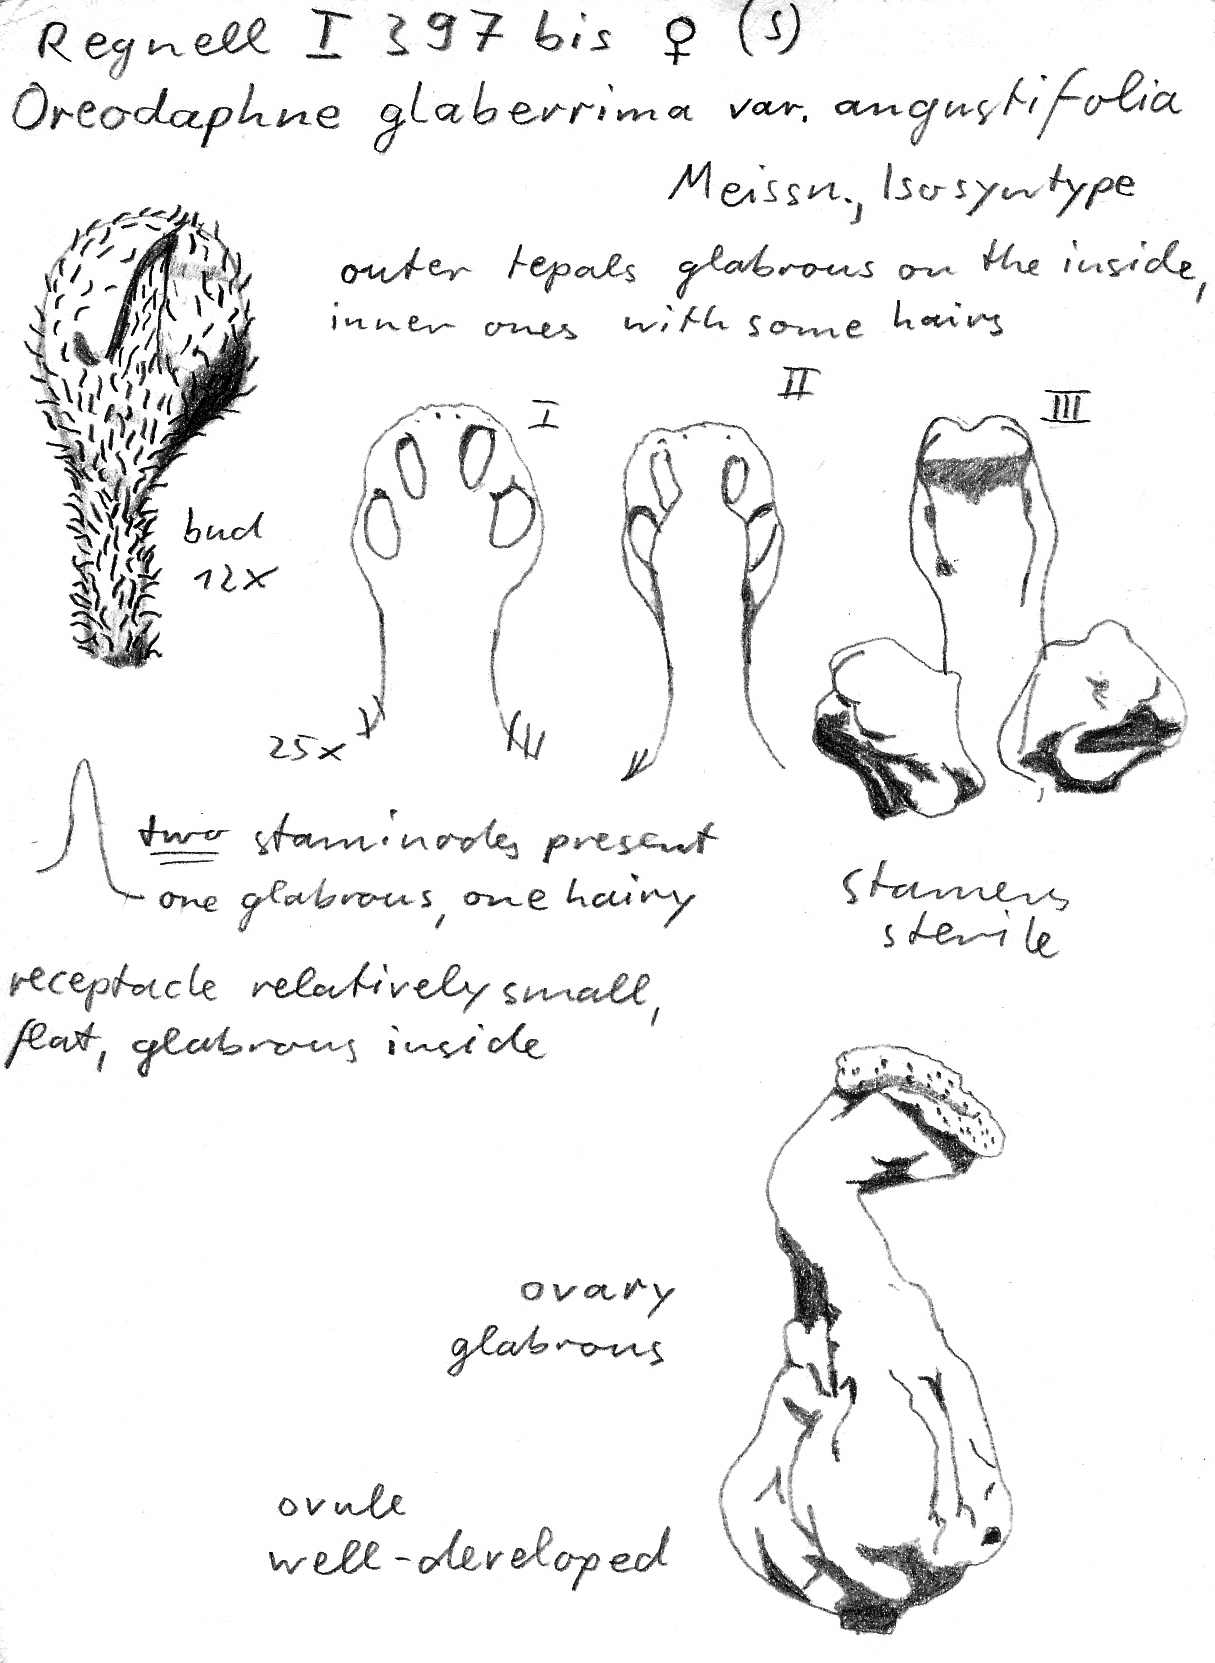 Regnell I 397 bis ♀ (S)
Oreodaphne glaberrima var. angustifolia
Meissn., Isosyntype
outer tepals glabrous on the inside,
inner ones with some hairs
I
II
III
bud
12x
25x
two staminodes present
one glabrous, one hairy
stamens
sterile
receptacle relatively small,
flat, glabrous inside
ovary
glabrous
ovule
well-developed